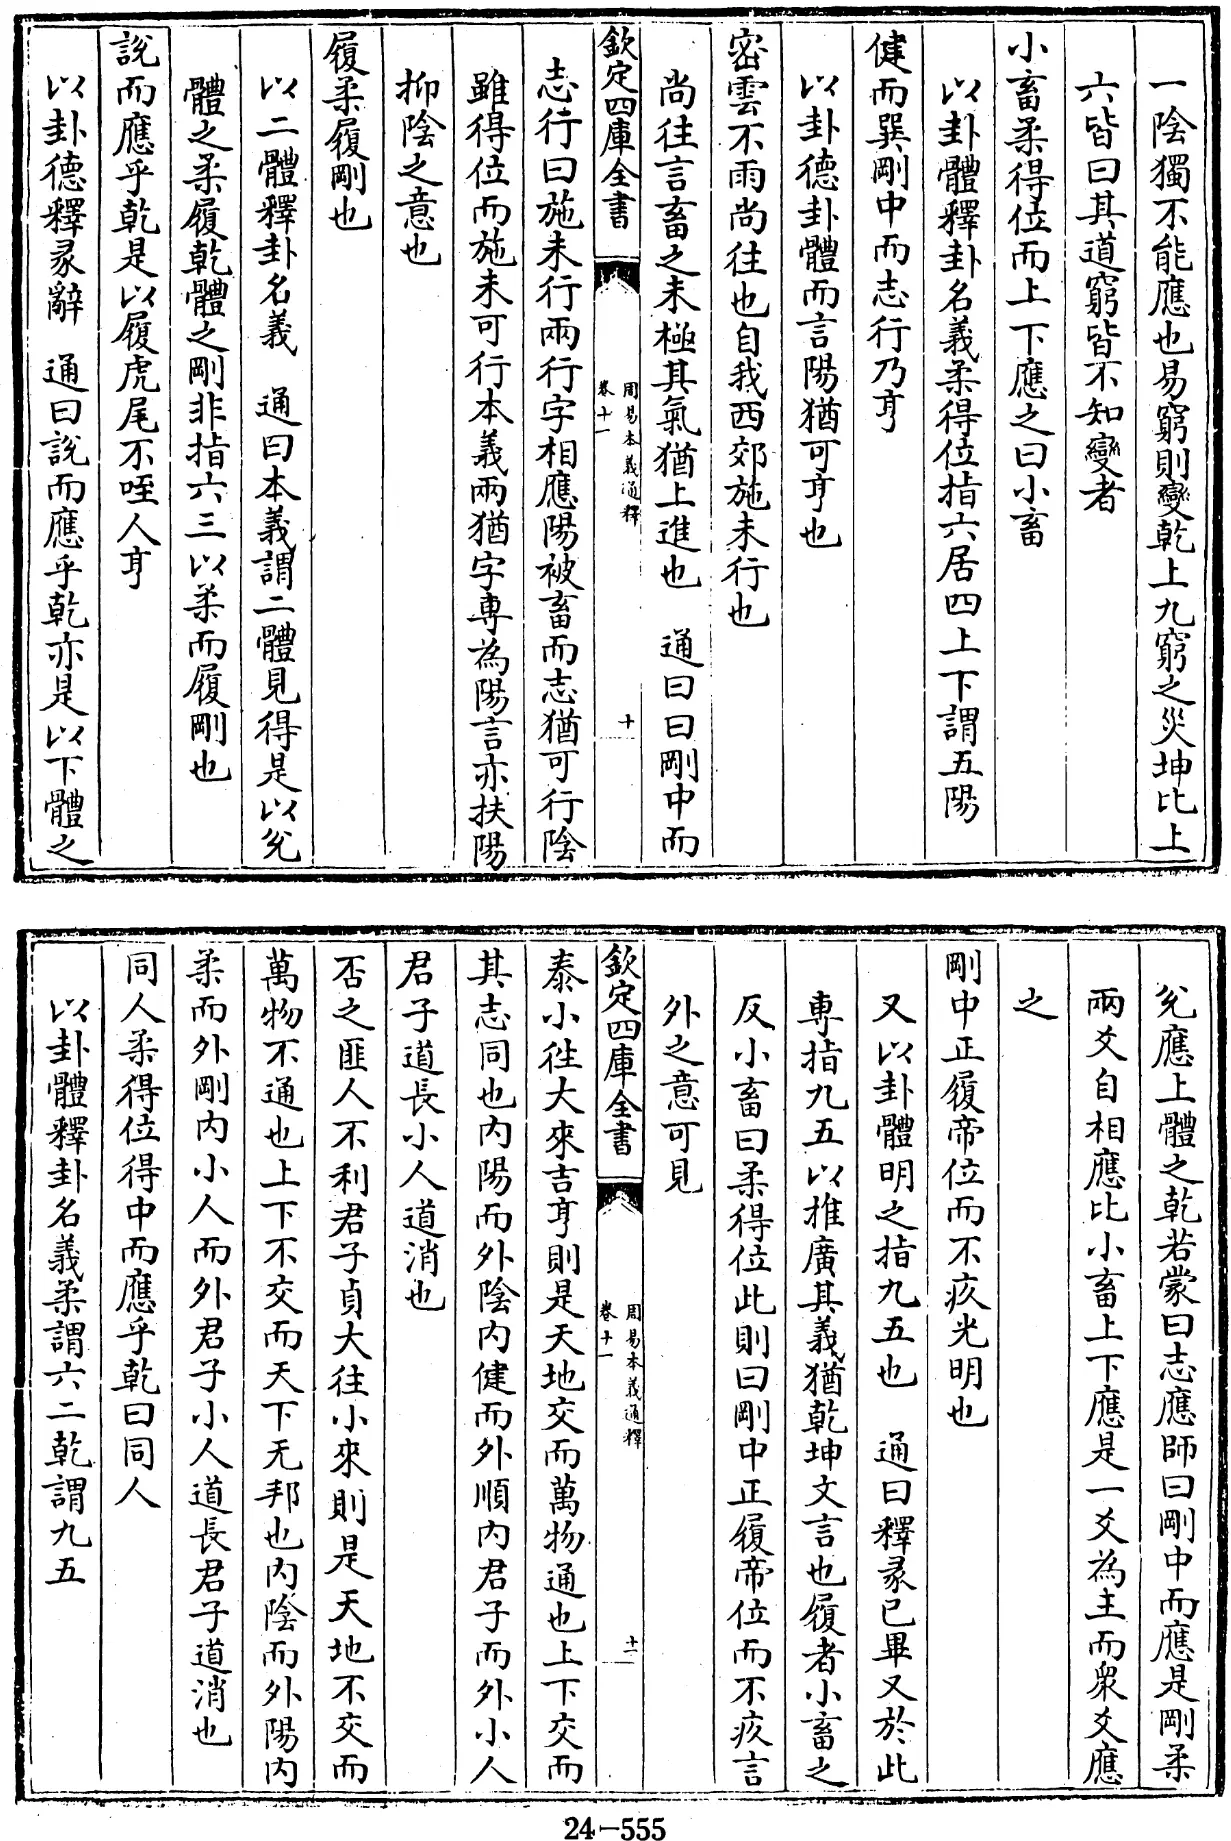 一陰獨不能應也易窮則變乾上九窮之災坤比上
六皆曰其道窮皆不知變者
小畜柔得位而上下應之曰小畜
以卦體釋卦名義柔得位指六居四上下謂五陽
健而巽剛中而志行乃亨
以卦德卦體而言陽猶可亨也
密雲不雨尚往也自我西郊施未行也
尚往言畜之未極其氣猶上進也　通曰曰剛中而
欽定四庫全書
周易本義通釋
卷十一
十
志行曰施未行兩行字相應陽被畜而志猶可行陰
雖得位而施未可行本義兩猶字專為陽言亦扶陽
抑陰之意也
履柔履剛也
以二體釋卦名義　通曰本義謂二體見得是以兊
體之柔履乾體之剛非指六三以柔而履剛也
說而應乎乾是以履虎尾不咥人亨
以卦德釋彖辭　通曰說而應乎乾亦是以下體之
兊應上體之乾若蒙曰志應師曰剛中而應是剛柔
兩爻自相應比小畜上下應是一爻為主而衆爻應
之
剛中正履帝位而不疚光明也
又以卦體明之指九五也　通曰釋彖已畢又於此
專指九五以推廣其義猶乾坤文言也履者小畜之
反小畜曰柔得位此則曰剛中正履帝位而不疚言
外之意可見
欽定四庫全書
周易本義通釋
卷十一
十一
泰小徃大來吉亨則是天地交而萬物通也上下交而
其志同也内陽而外陰内健而外順内君子而外小人
君子道長小人道消也
否之匪人不利君子貞大往小來則是天地不交而
萬物不通也上下不交而天下无邦也内陰而外陽内
柔而外剛内小人而外君子小人道長君子道消也
同人柔得位得中而應乎乾曰同人
以卦體釋卦名義柔謂六二乾謂九五
24-555